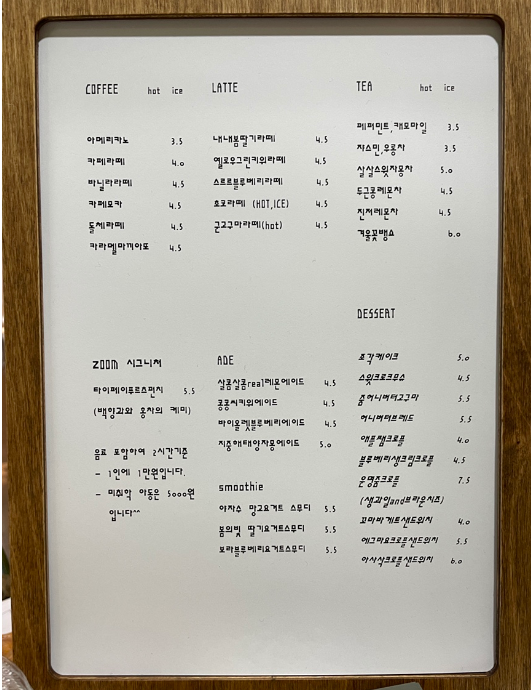 COFFEE hot ice
아메리카노 3.5
카페라떼 4.0
바닐라라떼 4.5
카페모카 4.5
돌체라떼 4.5
카라멜마끼아또 4.5
LATTE
내내봄딸기라떼 4.5
옐로우그린키위라떼 4.5
스르르블루베리라떼 4.5
초코라떼 (HOT,ICE) 4.5
군고구마라떼(hot) 4.5
TEA hot ice
페퍼민트,캐모마일 3.5
자스민,우롱차 3.5
살살스윗자몽차 5.0
두근콩레몬차 4.5
진저레몬차 4.5
겨울꽃뱅쇼 6.0
ZOOM 시그니처
타이페이후르츠펀치 5.5
(백양과와 홍차의 케미)
음료 포함하여 2시간기준
- 1인에 1만원입니다.
- 미취학 아동은 5000원
입니다^^
ADE
살콤살콤real레몬에이드 4.5
콩콩씨키위에이드 4.5
바이올렛블루베리에이드 4.5
지중해태양자몽에이드 5.0
smoothie
야자수 망고요거트 스무디 5.5
봄의빛 딸기요거트스무디 5.5
보라블루베리요거트스무디 5.5
DESSERT
조각케이크 5.0
스윗크로크무슈 4.5
줌허니버터고구미 5.5
허니버터브레드 5.5
애플잼크로플 4.0
블루베리생크림크로플 4.5
운명줌크로플 7.5
(생과일and브라운치즈)
꼬마바게트샌드위치 4.0
에그마요크로플샌드위치 5.5
아사삭크로플샌드위치 6.0